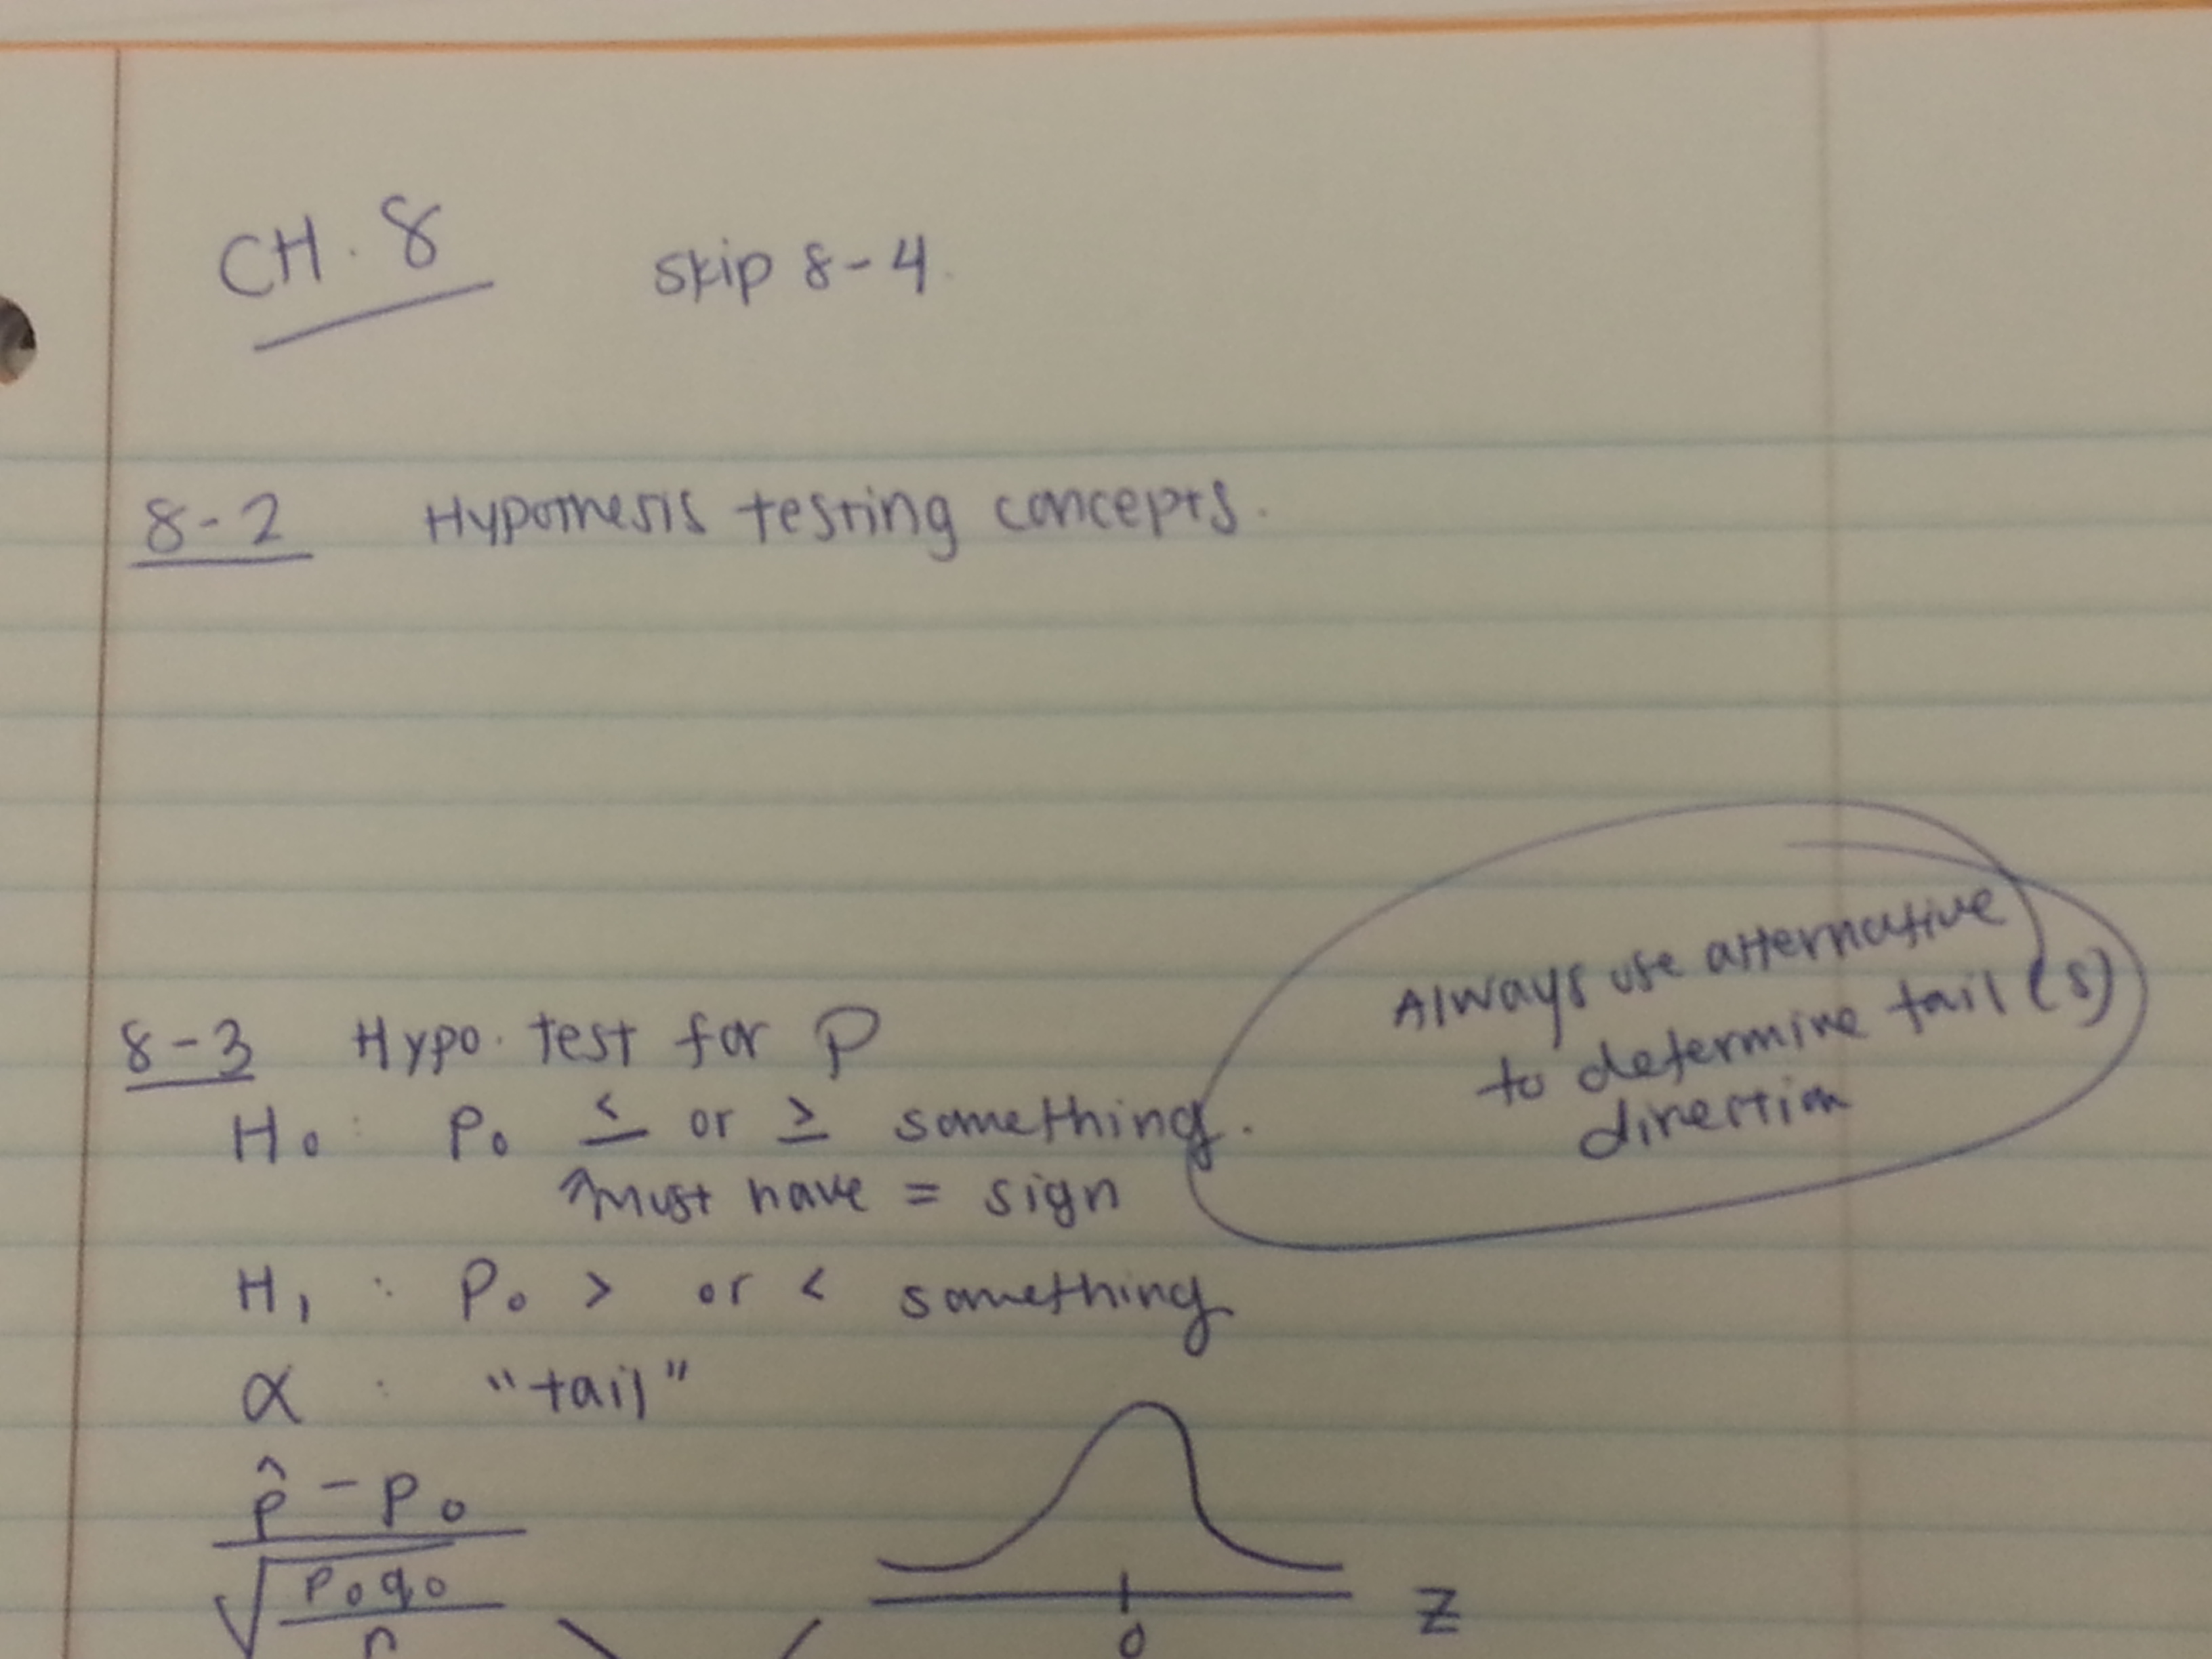 CH. 8 skip 8-4.
8-2 Hypothesis testing concepts.
Always use alternative
to determine tail(s)
direction
8-3 Hypo. test for P
H₀: P₀ ≤ or ≥ something.
↑must have = sign
H₁: P₀ > or < something
α: "tail"
p̂ - p₀
√ p₀q₀
n
0 Z